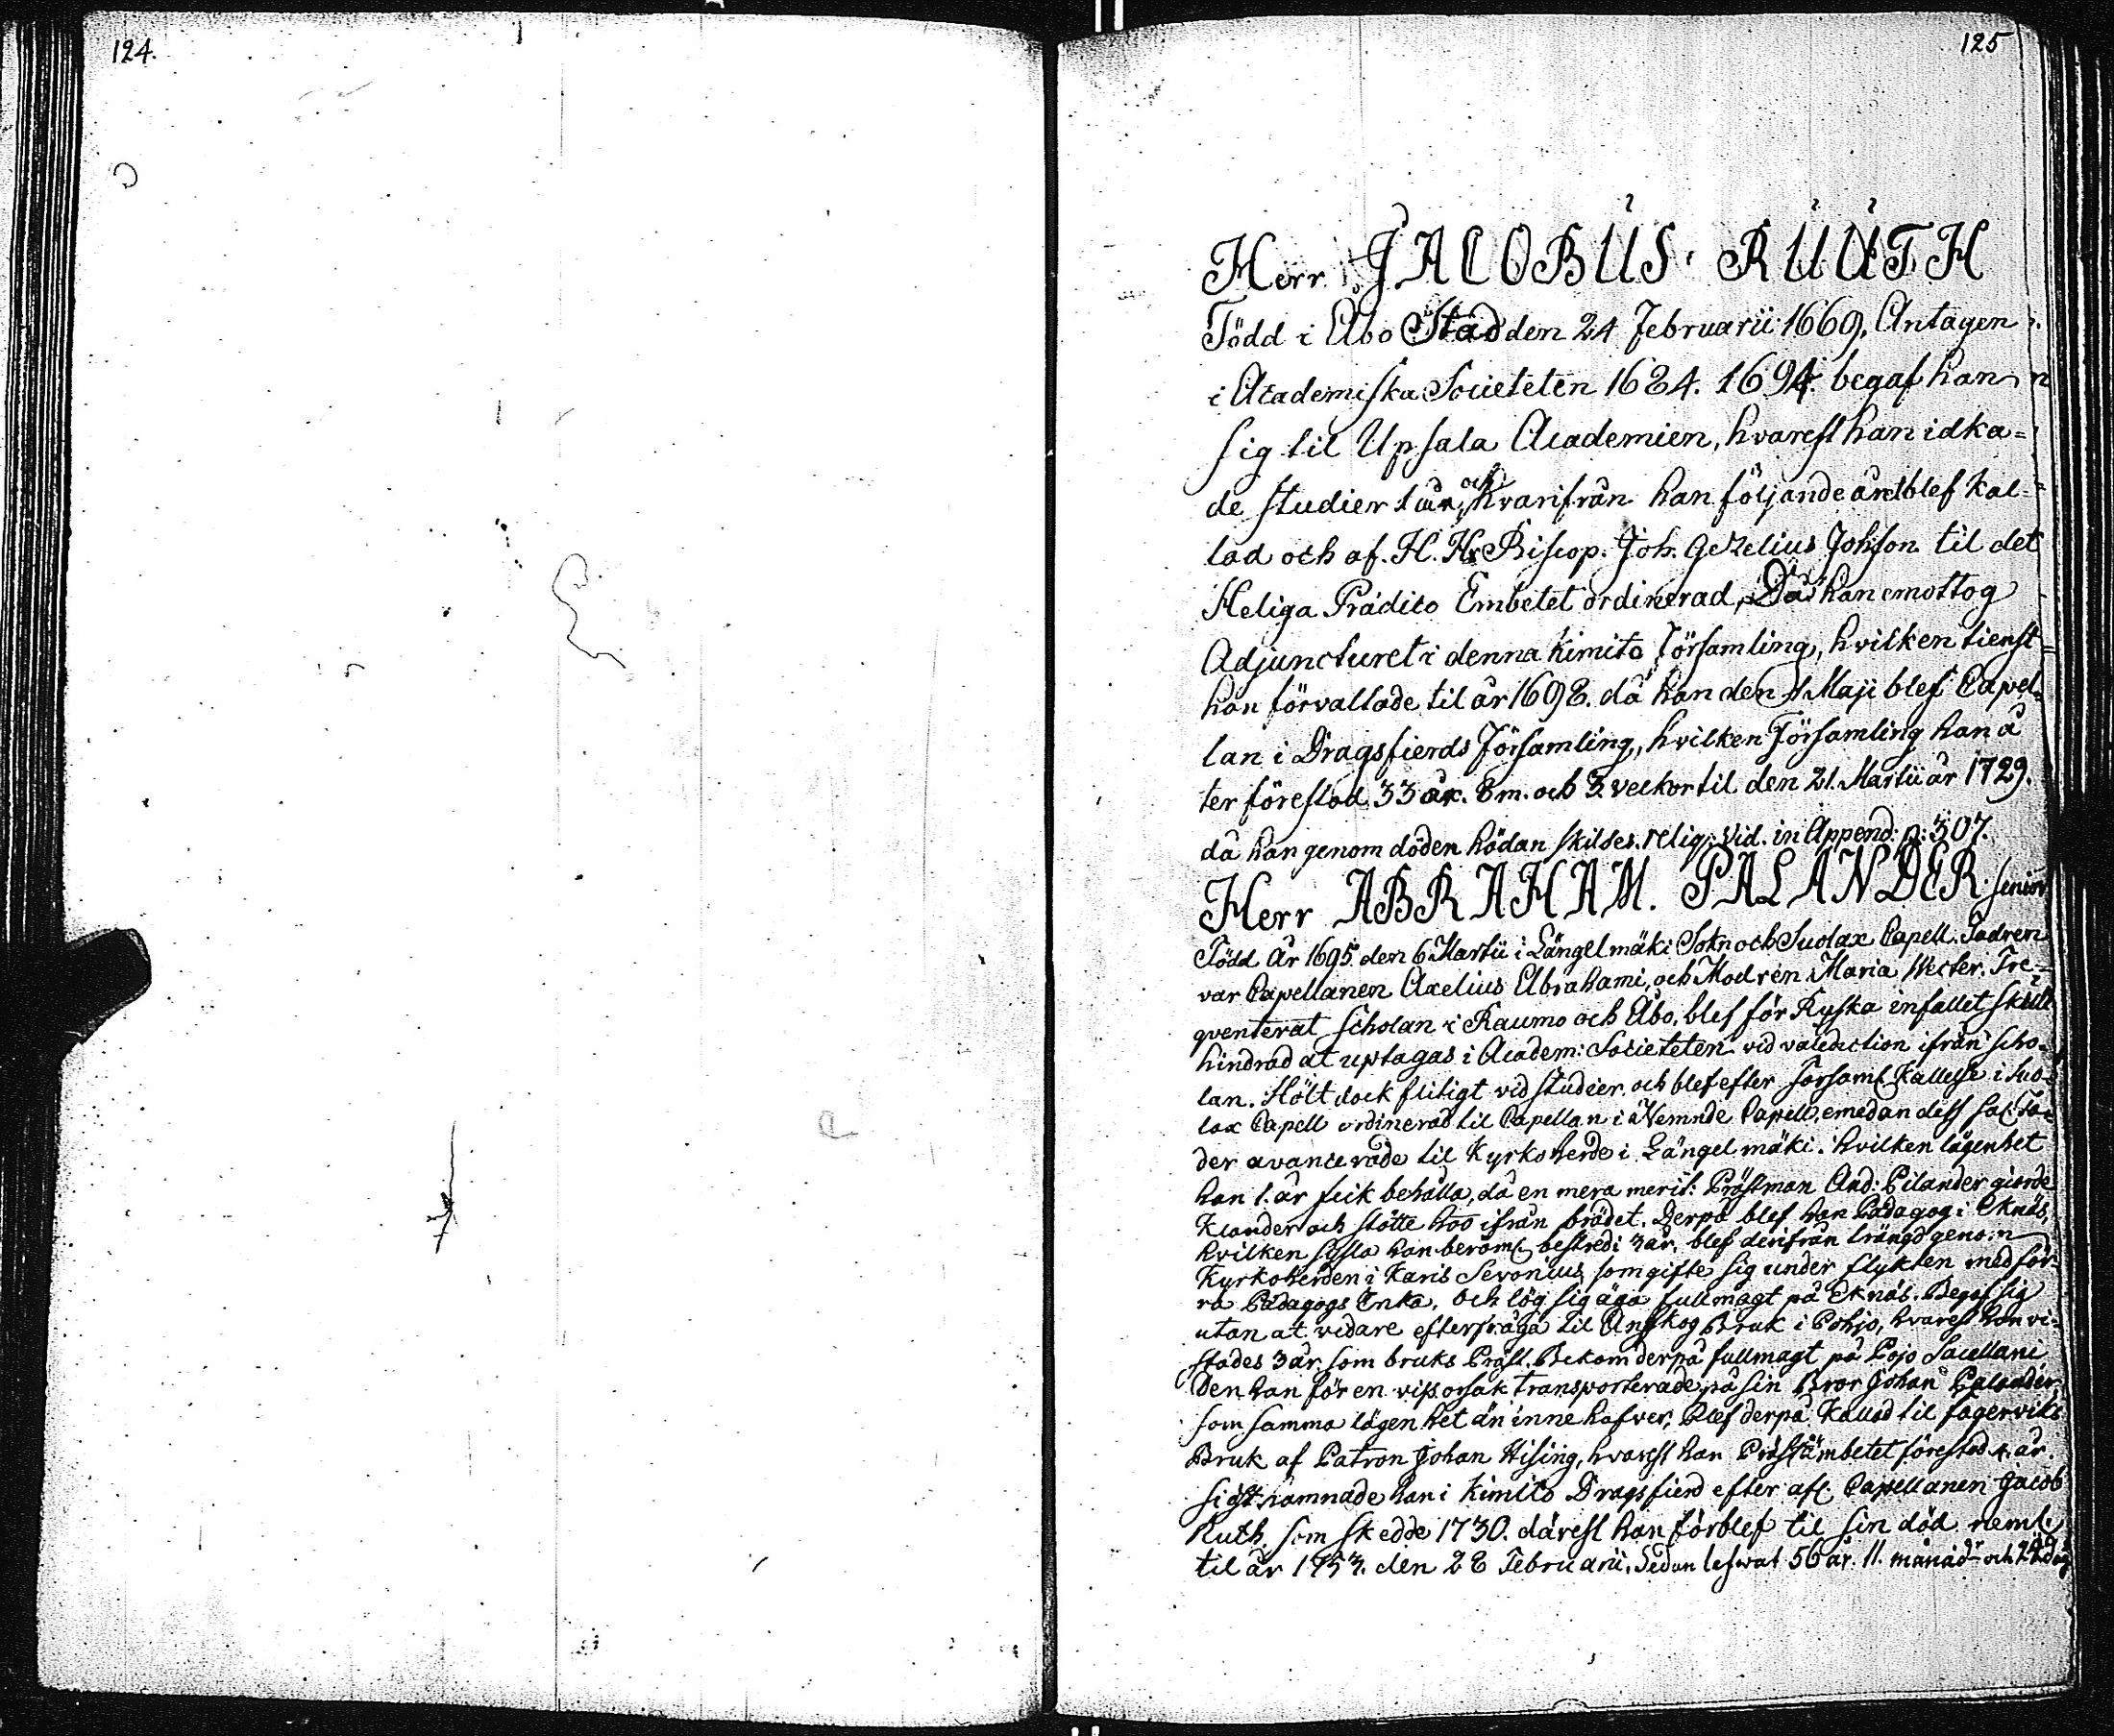 124.
125
Herr JACOBUS RUUTH
Född i Åbo Stad den 24 Februarii 1669. Antagen
i Academiska Societeten 1684. 1694. begaf han
sig til Upsala Academien, hvarest han idka=
de studier 1 år, och hvarifrån han följande året blef kal=
lad och af H. Hr Biscop. Joh. Gezelius Johson til det
Heliga Prädico Embetet ordinerad, Då han emottog
Adjuncturet i denna Kimito Församling, hvilken tienst
han förvaltade til år 1698. då han den 1 Maji blef Capel=
lan i Dragsfierds Församling, hvilken Församling han å
ter förestod 33 år. 8 m. och 3. veckor til den 21. Martii år 1729.
då han genom döden hädan skildes. relig. Vid. in Append: p: 307.
Herr ABRAHAM. PALANDER senior
Född År 1695 den 6 Martii i Längelmäki Sokn och Suolax Capell. Fadren
var Capellanen Axelius Abrahami, och Modren Maria Wecter. Fre=
qventerat scholan i Raumo och Åbo, blef för Ryska infallet skull
hindrad at uptagas i Academ: Societeten vid valediction ifrån scho=
lan. Hölt dock flitigt vid studier och blef efter församl. Kallelse i Suo=
lax Capell ordinerad til Capellan i Nemnde Capell, emedan dess sal. Fa=
der avancerade til Kyrkoherde i Längelmäki. hvilken lägenhet
han 1. år feik behålla, då en mera merit: Prästman And: Pilander giorde
Klander och stötte hoo ifrån brödet. Derpå blef han Pädagog i Eknäs,
hvilken sysla han beröml. bestred i 3 år. blef derifrån trängd genom
Kyrkoherden i Karis Sevonius, som gifte sig under flykten med för=
ra Pädagogs Enka, och lög sig äga fullmagt på Eknäs. Begaf sig
utan at vidare efterfråga til Anskog Bruk i Pohjo, hvarest han vi=
stades 3 år. som bruks Präst. Bekom derpå fullmagt på Pojo Sacellani
Den han för en viss orsak transporterade på sin Bror Johan Palander
som samma lägenhet än innehafver; Blef derpå Kallad til Fagerviks
Bruk af Patron Johan Hising, hvarest han Prästämbetet förestod 4. år.
sidst hamnade han i Kimito Dragsfierd efter afl. Capellanen Jacob
Ruth, som skedde 1730. därest han förblef til sin död neml.
til år 1753. den 28 Februarii. Sedan lefwat 56 år. 11. månadr och dag